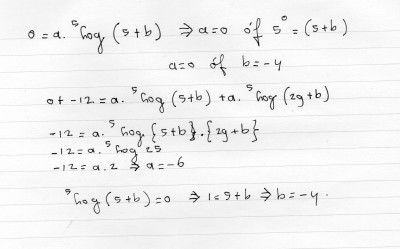 0 = a. ⁵log (5+b) ⇒ a=0 óf 5⁰ = (5+b)
a=0 óf b=-4
0+ -12 = a. ⁵log (5+b) + a. ⁵log (29+b)
-12 = a. ⁵log {5+b}.{29+b}
-12 = a. ⁵log 25
-12 = a.2 ⇒ a=-6
⁵log (5+b) = 0 ⇒ 1=5+b ⇒ b=-4.